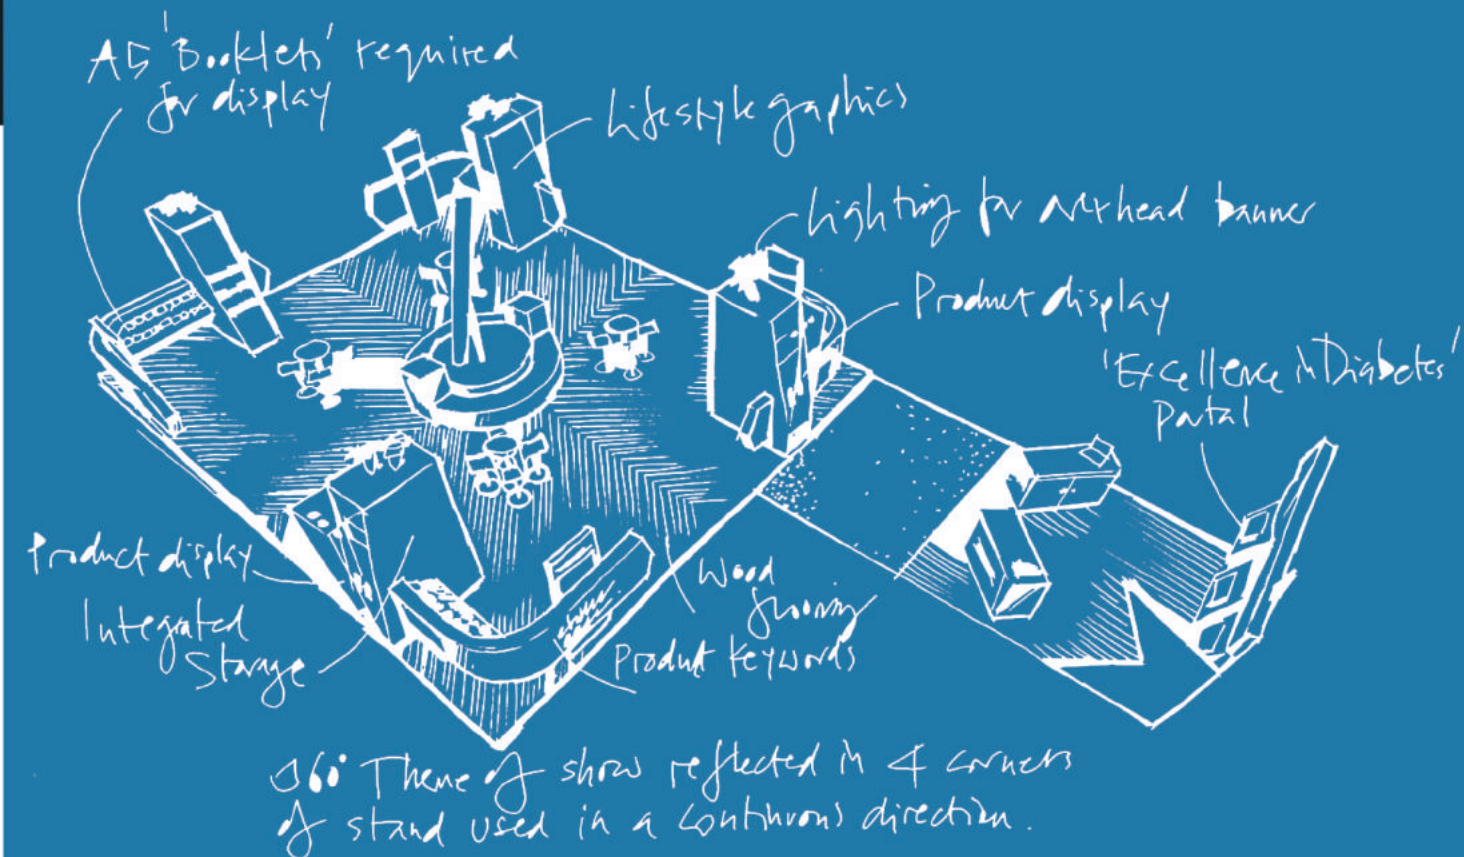 A5 'Booklets' required
for display
Lifestyle graphics
Lighting for overhead banner
Product display
'Excellence in Diabetes'
Portal
Product display
Integrated
Storage
Wood
flooring
Product keywords
360° Theme of show reflected in 4 corners
of stand used in a continuous direction.